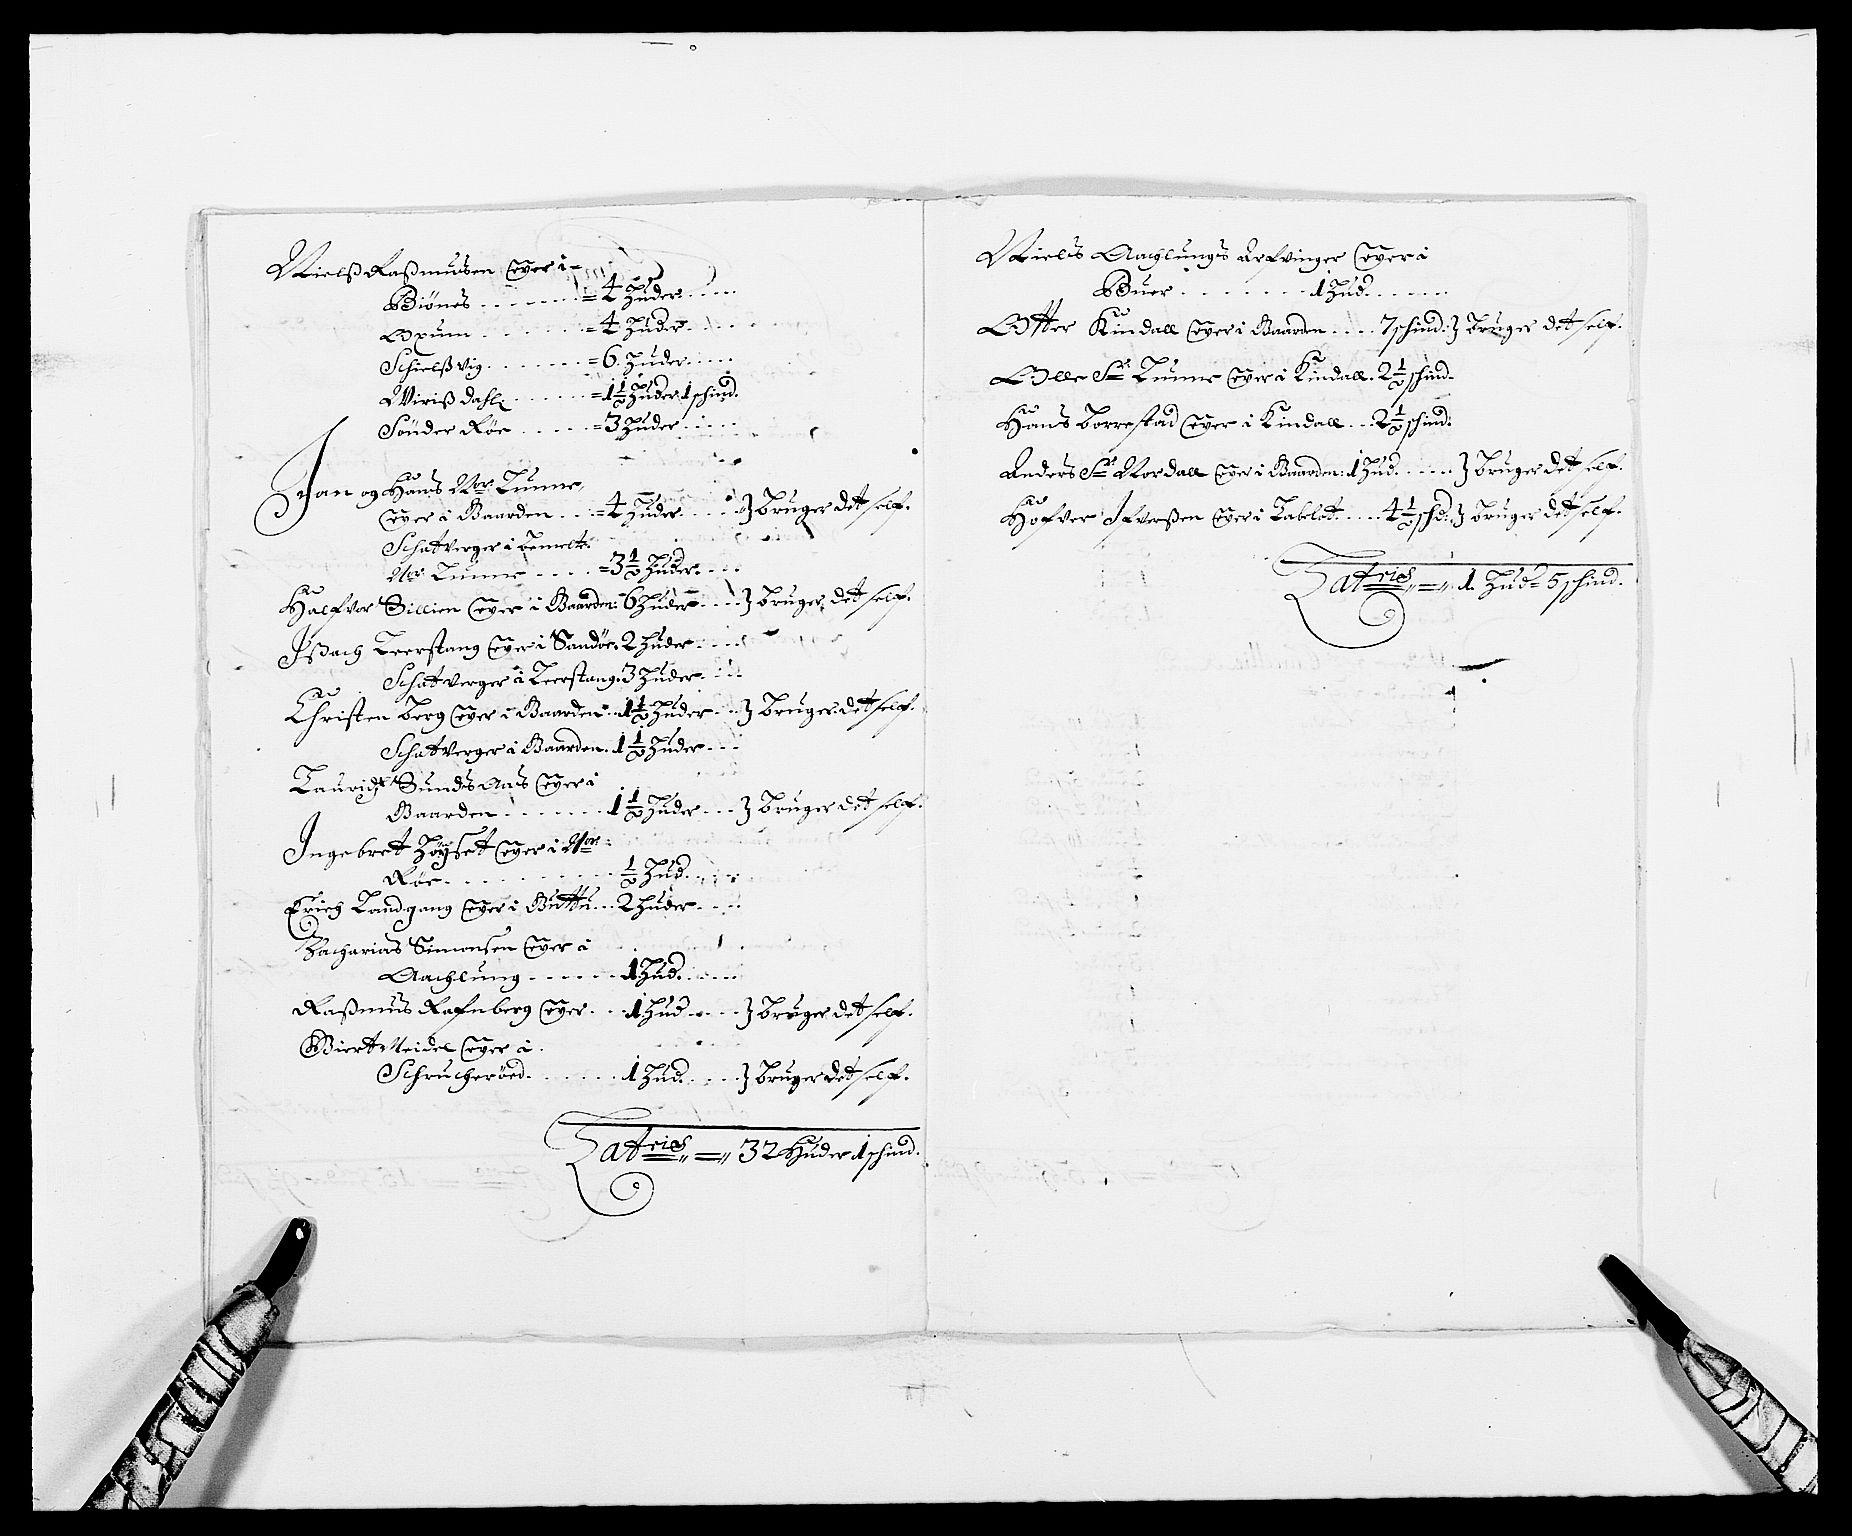 Nielß Raßmusen Eyer i
Biönes ....... = 4 Huder
Oxum ....... = 4 Huder
Schielßvig ....... = 6 Huder
Wiriß dahl ....... = 1½ Huder 1 schind.
Sönder Röe ..... = 3 Huder
Jvan og Hans Nor: Tunne,
Eyer i Gaarden ... = 4 Huder ... J bruger det self.
Schatverger i bemelte
Nor Tunne .... = 3½ Huder
Halfvor Sillien Eyer i Gaarden: 6 Huder .... J bruger det self.
Jßach Leerstang Eyer i Sandöe. 2 Huder
Schatverger i Leerstang. 3 Huder
Christen berg Eyer i Gaarden. 1½ Huder .. J bruger det self.
Schatverger i Gaarden. 1½ Huder
Lauridtz Sundsaas Eyer i
Gaarden ....... 1½ Huder ... J bruger det self.
Ingebret Höyset Eyer i Nor:
Röe ......... ½ Hud.
Erich Landgang Eyer i Guttu .. 2 Huder
Zacharias Simonsen Eyer i
Aachlung ...... 1 Hud.
Raßmus Rafnberg Eyer .. 1 Hud .... J bruger det self.
Giert Meidel Eyer i
Schrucheröed ...... 1 Hud .... J bruger det self.
Latris = 32 Huder 1 schind.
Niels Aachlungs Arfvinger Eyer i
Buer ....... 1 Hud
Otter Kindall Eyer i Gaarden .... 7 schind: J bruger det self.
Olle Sr: Tunne Eyer i Kindall. 2½ schind.
Hans borrestad Eyer i Kindall ... 2½ schind:
Anders Sr: Nordall Eyer i Gaarden: 1 Hud .... J bruger det self.
Hofver Ifverßen Eyer i Tabelot .... 4½ schd: J bruger det self.
Latris = 1 Hud = 5 schind.